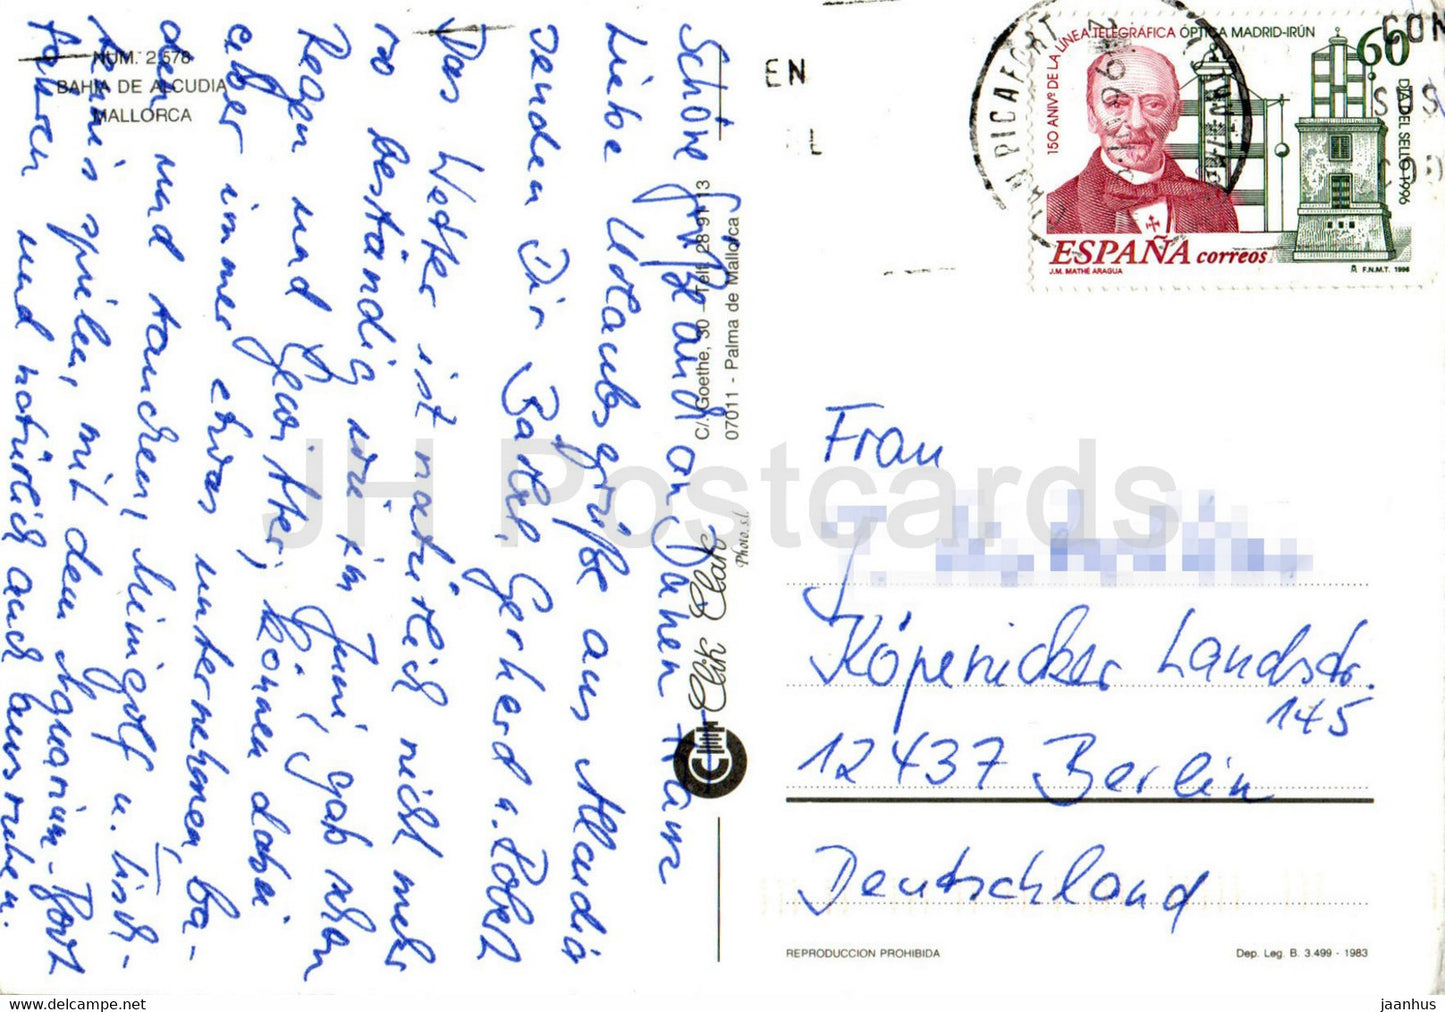 NUM. 2.578
BAHIA DE ALCUDIA
MALLORCA
Schöne Grüße auch an Danen + Ham
Liebe Urlaubsgrüße aus Alcudia
senden Dir Bärbel, Gerhard u. Robert
Das Wetter ist natürlich nicht mehr
so beständig wie im Juni, gab schon
Regen und Gewitter, können dabei
aber immer etwas unternehmen, ba-
den und tauchen, Minigolf u. Tisch-
tennis spielen, mit dem Aquarium-Boot
fahren und natürlich auch ausruhen.
C/. Goethe, 30 - Telf. 28 91 13
07011 - Palma de Mallorca
Clik Clak
Photo, s.l.
JH Postcards
EN
L
CAN PICAFORT
150 ANIVº DE LA LÍNEA TELEGRÁFICA ÓPTICA MADRID-IRÚN
60
DÍA DEL SELLO 1996
ESPAÑA correos
J.M. MATHÉ ARAGUA
F.N.M.T. 1996
CON
Frau
J.
Köpenicker Landstr.
145
12437 Berlin
Deutschland
REPRODUCCION PROHIBIDA
Dep. Leg. B. 3.499 - 1983
https://www.ebay.com/str/jhpostcards
jaanhus